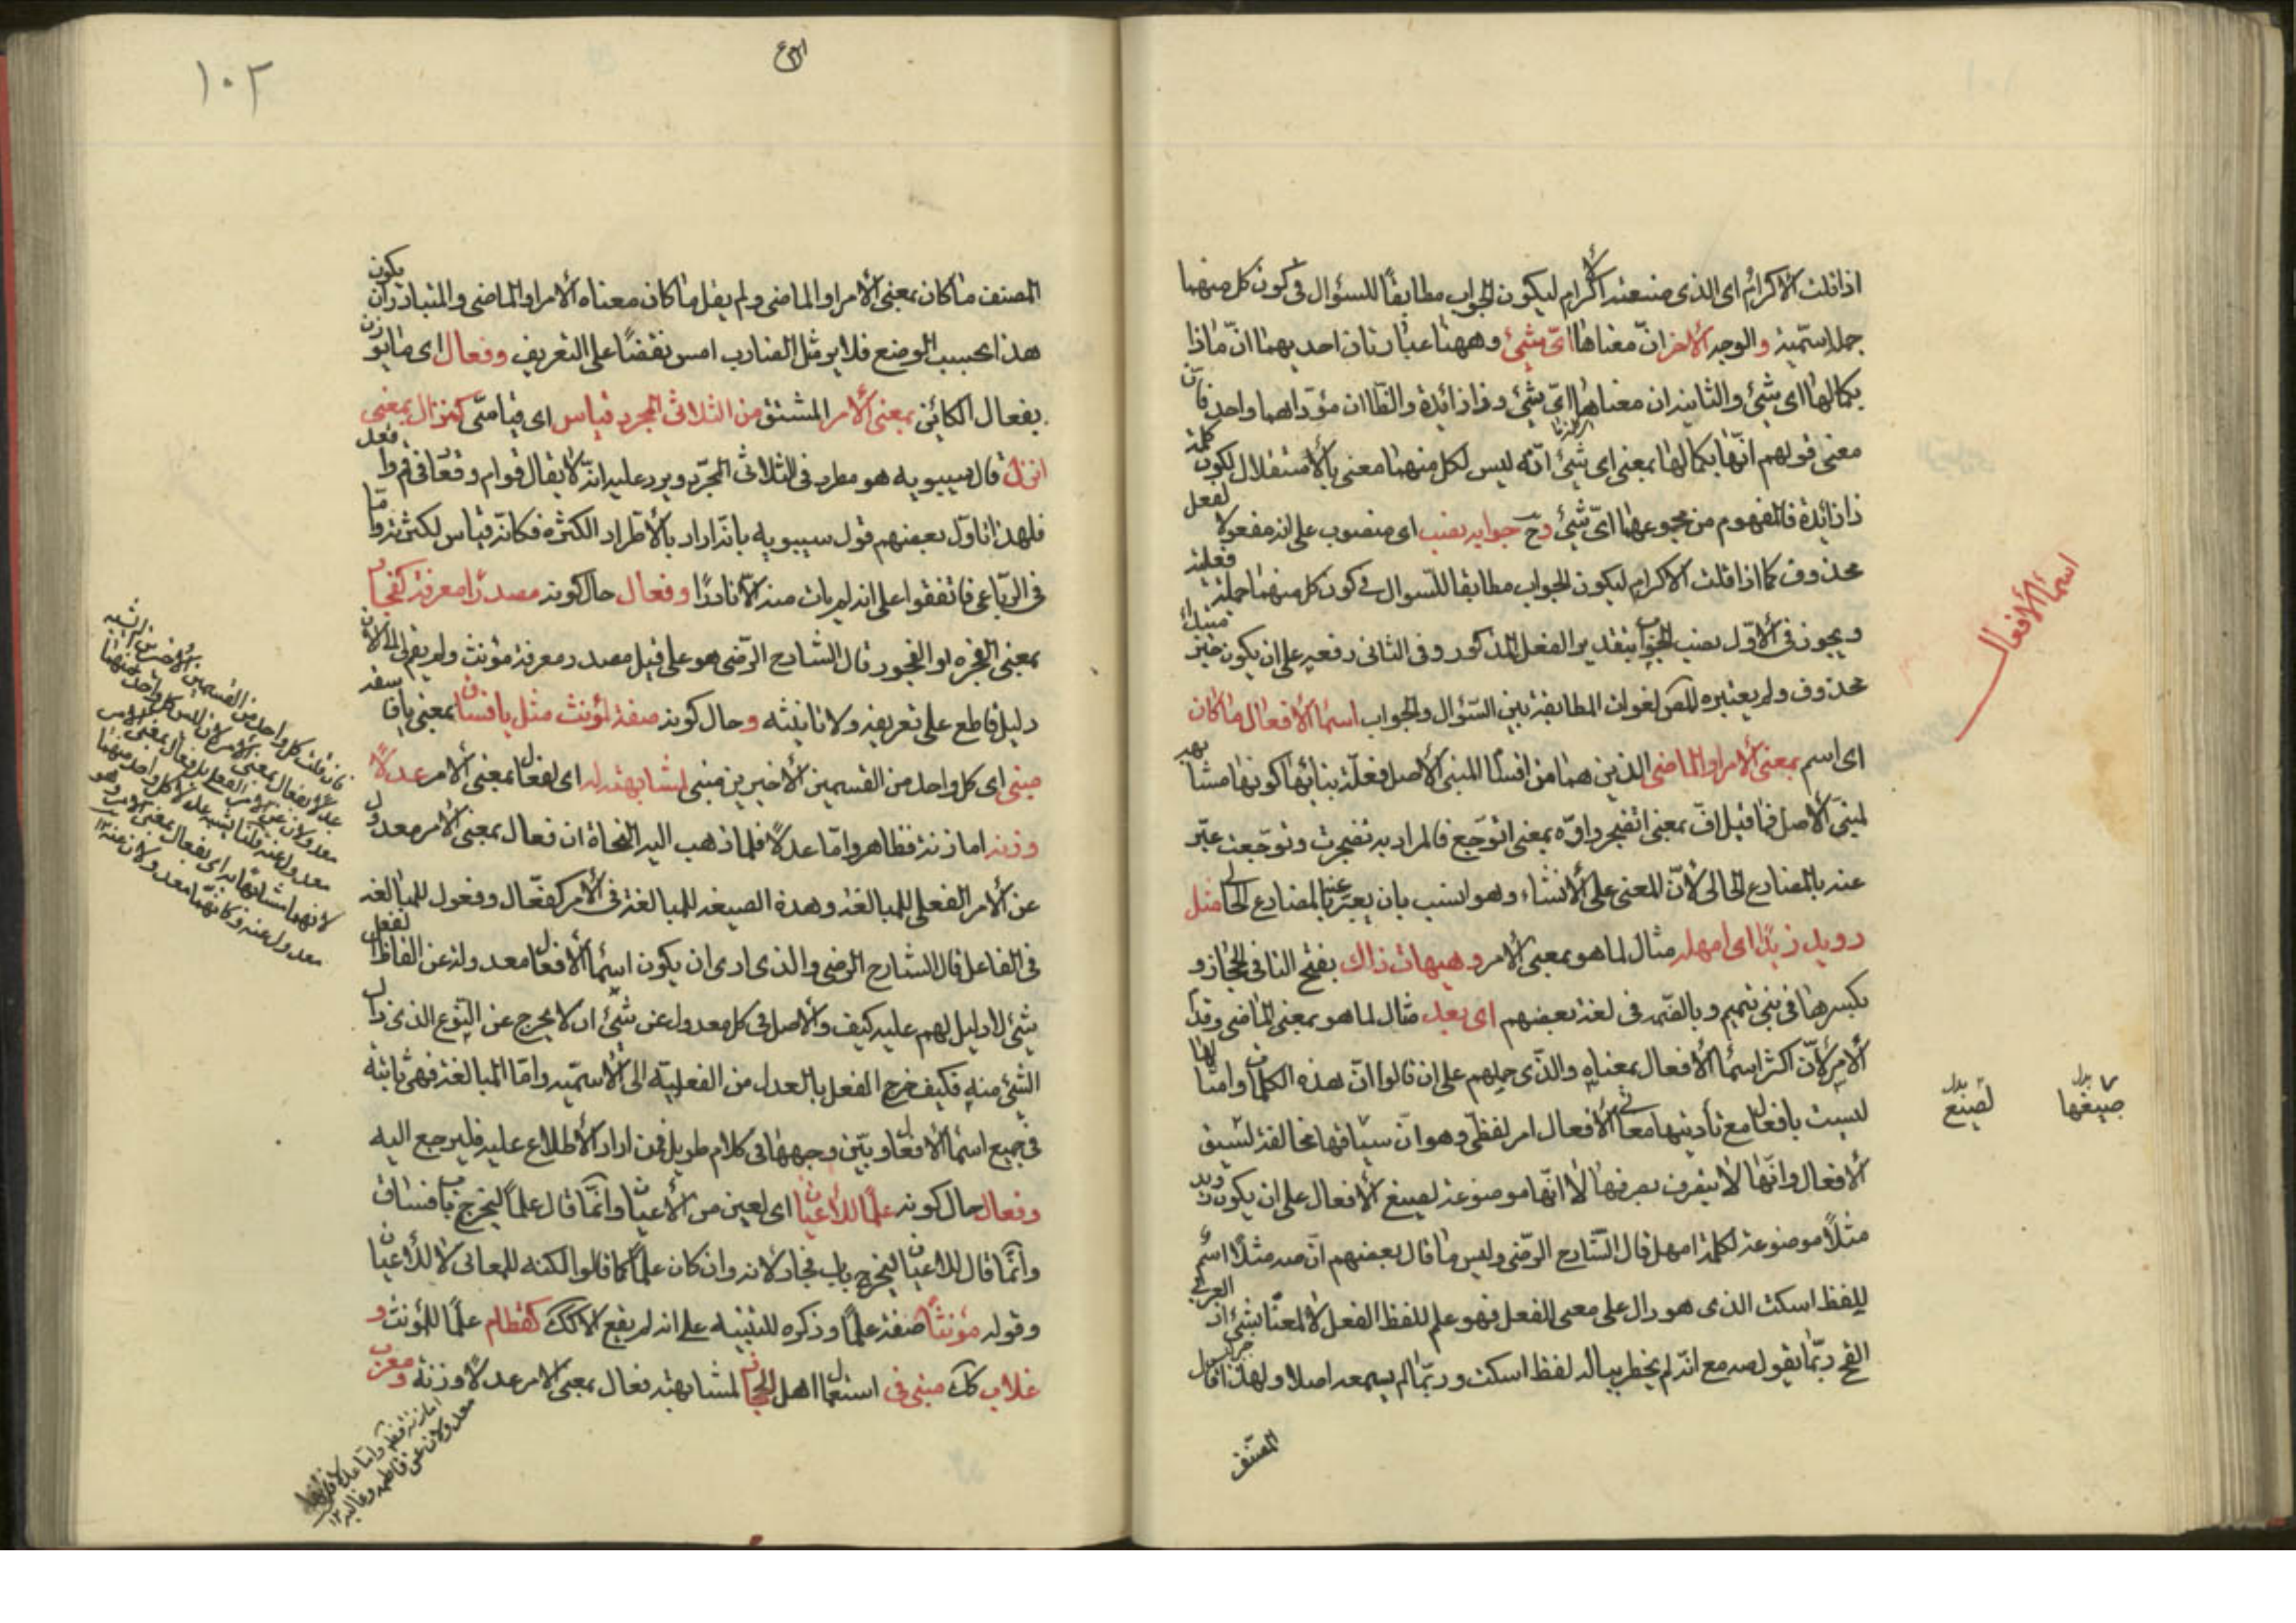 اذا قلت الاكرام اى الذى صنعته الاكرام ليكون الجواب مطابقًا للسؤال فى كون كل منهما
جملة اسمّية والوجه الاخر انّ معناها اىّ شئ وههنا عبارتان احديهما انّ ماذا
بكمالها اى شئ والثانية ان معناها اىّ شئ وذا زائدة والظاان مؤدّاهما واحد فان
معنى قولهم انّها بكمالها بمعنى اى شئ انّه ليس لكل منهما معنى بالاستقلال لكون كلمة
ذا زائدة فالمفهوم من مجموعهما اىّ شئ وح جوابه نصب اى منصوب على انه مفعول لفعل
محذوف كما اذا قلت الاكرام ليكون الجواب مطابقا للسوال فى كون كل منهما جملة فعلية
ويجوز فى الاوّل نصب الجواب بتقدير الفعل المذكور وفى الثانى رفعه على ان يكون خبر مبتدا
محذوف ولم يعتبره المص لفوات المطابقة بين السّؤال والجواب اسماء الافعال ما كان
اى اسم بمعنى الامر او الماضى الذين هما من اقسام المبنى الاصل فعلّة بنائها كونها مشابهة
لمبنىّ الاصل فما قيل افّ بمعنى اتضجر واوّه بمعنى اتوجّع فالمراد به تضجرت وتوجّعت عبّر
عنه بالمضارع الحالى لانّ المعنى على الانشاء وهو انسب بان يعبّر عنه بالمضارع الحالى مثل
رويد زيدًا اى امهله مثال لما هو بمعنى الامر وهيهات ذاك بفتح التا فى الحجاز و
بكسرها فى بنى تميم وبالضّم فى لغة بعضهم اى بعد مثال لما هو بمعنى الماضى وقدّم
الامر لانّ اكثر اسماء الافعال بمعناه والذّى حملهم على ان قالوا انّ هذه الكلمات وامثالها
ليست بافعال مع تأديتها معانى الافعال امر لفظى وهو انّ سياقها مخالفة لسيق
الافعال وانّها لا يتصرف تصرفها لا انّها موضوعة لصيغ الافعال على ان يكون رويد
مثلًا موضوعة لكلمة امهل قال الشّارح الرّضى وليس ما قال بعضهم انّ صه مثلًا اسم
للفظ اسكت الذى هو دال على معنى الفعل فهو علم للفظ الفعل لا لمعناه بشئ اذ العربى
القح ربّما يقول صه مع انّه لم يخطر بباله لفظ اسكت وربّما لم يسمعه اصلا ولهذا قال
المصنف
اسماء الافعال
بدل صيغها
بدل لصيغ
١٠٢
المصنف ما كان بمعنى الامر او الماضى ولم يقل ما كان معناه الامر او الماضى والمتبادر ان يكون
هذا بحسب الوضع فلا يرد مثل الضارب امس نقضًا على التعريف وفعال اى ما يوزن
بفعال الكائن بمعنى الامر المشتق من الثلاثى المجرد قياس اى قياسّى كنزال بمعنى
انزل قال سيبويه هو مطرد فى الثلاثى المجرّد ويرد عليه انّه لا يقال قوام وقعاد فى قم واقعد
فلهذا تاوّل بعضهم قول سيبويه بانّه اراد بالاطّراد الكثرة فكانّه قياس لكثرته وامّا
فى الرّباعى فاتفقوا على انه لم يات منه الّا نادرًا وفعال حال كونه مصدرًا معرفة كفجار
بمعنى الفجرة او الفجور قال الشارح الرّضى هو على قيل مصدر معرفة مؤنث ولم يقم لى الى الان
دليل قاطع على تعريفه ولا تانيثه وحال كونه صفة لمؤنث مثل يا فساق بمعنى يا فاسقة
مبنى اى كل واحد من القسمين الاخيرين مبنى لمشابهته له اى لفعال بمعنى الامر عدلًا
وزنة اما زنة فظاهر وامّا عدلًا فلما ذهب اليه النحاة ان فعال بمعنى الامر معدول
عن الامر الفعلى للمبالغة وهذه الصيغة للمبالغة فى الامر كفعّال وفعول للمبالغة
فى الفاعل قال الشارح الرضى والذى ارى ان يكون اسماء الافعال معدولة عن الفاظ الفعل
شئ لا دليل لهم عليه كيف والاصل فى كل معدول عن شئ ان لا يخرج عن النّوع الذى ذلك
الشئ منه فكيف خرج الفعل بالعدل من الفعليّة الى الاسميّة وامّا المبالغة فهى ثابتة
فى جميع اسماء الافعال وبيّن وجهها فى كلام طويل فمن اراد الاطلاع عليه فليرجع اليه
وفعال حال كونه علمًا للاعيان اى لعين من الاعيان وانّما قال علمًا ليخرج باب فساق
وانّما قال للاعيان ليخرج باب فجار لانه وان كان علمًا كما قالوا لكنه للمعانى لا للاعيان
وقوله مؤنثًا صفة علمًا وذكره للتنبيه على انه لم يقع الا كك كقطام علمًا لمؤنث و
غلاب كك مبنى فى استعمال اهل الحجاز لمشابهته فعال بمعنى الامر عدلًا وزنة ومعرب
فان قلت كل واحد من القسمين الاخيرين